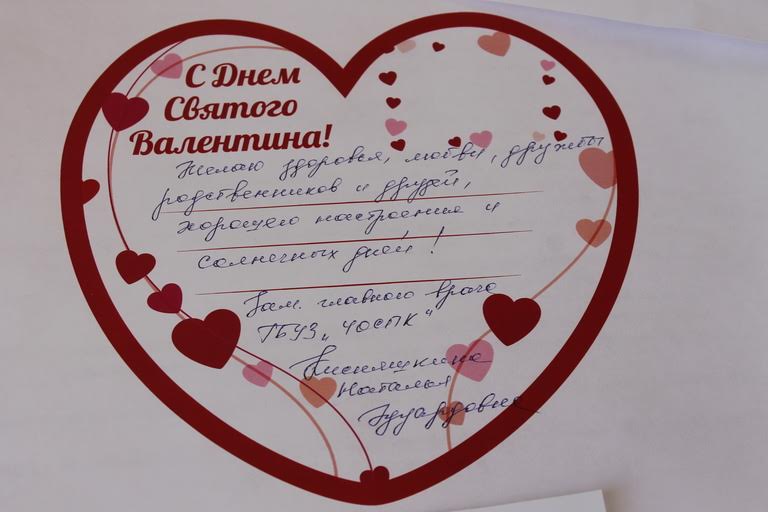 С Днем
Святого
Валентина!
Желаю здоровья, любви, дружбы
родственников и друзей,
хорошего настроения и
солнечных дней!
Зам. главного врача
ГБУЗ „ЧОСПК"
Наталья
Эдуардовна